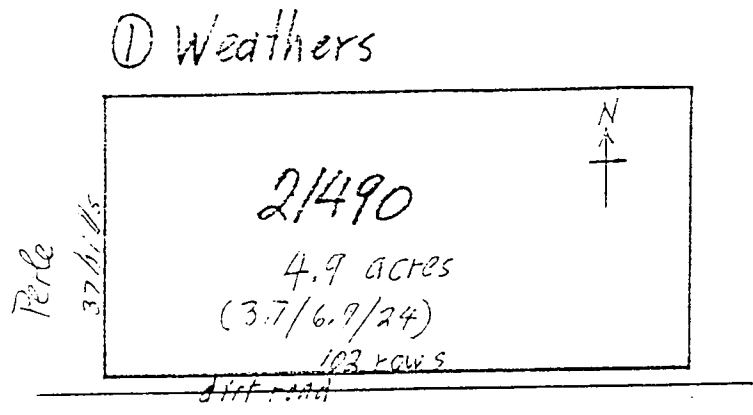 ① Weathers
N
21490
4.9 acres
(3.7/6.9/24)
103 rows
dirt road
Perle
37 hills